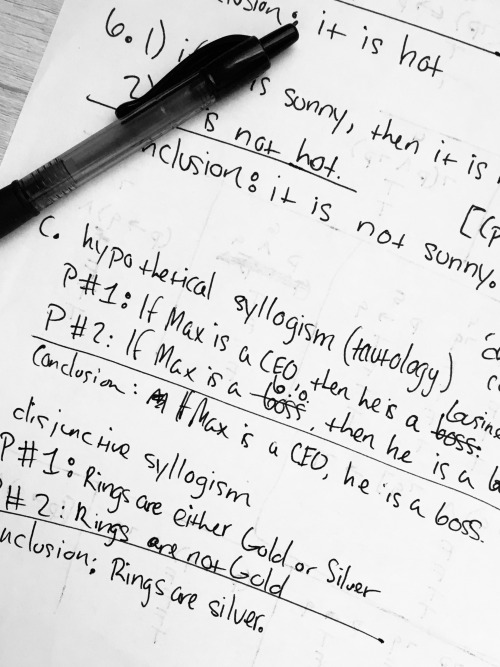 : it is hot
6. 1) is sunny, then it is
2) is not hot.
nclusion: it is not sunny.
[(p
C. hypothetical syllogism (tautology)
P#1: If Max is a CEO, then he is a boss.
P#2: If Max is a boss b.o., then he is a
Conclusion: If Max is a CEO, he is a boss.
disjunctive syllogism
P#1: Rings are either Gold or Silver
P#2: Rings are not Gold
nclusion: Rings are silver.